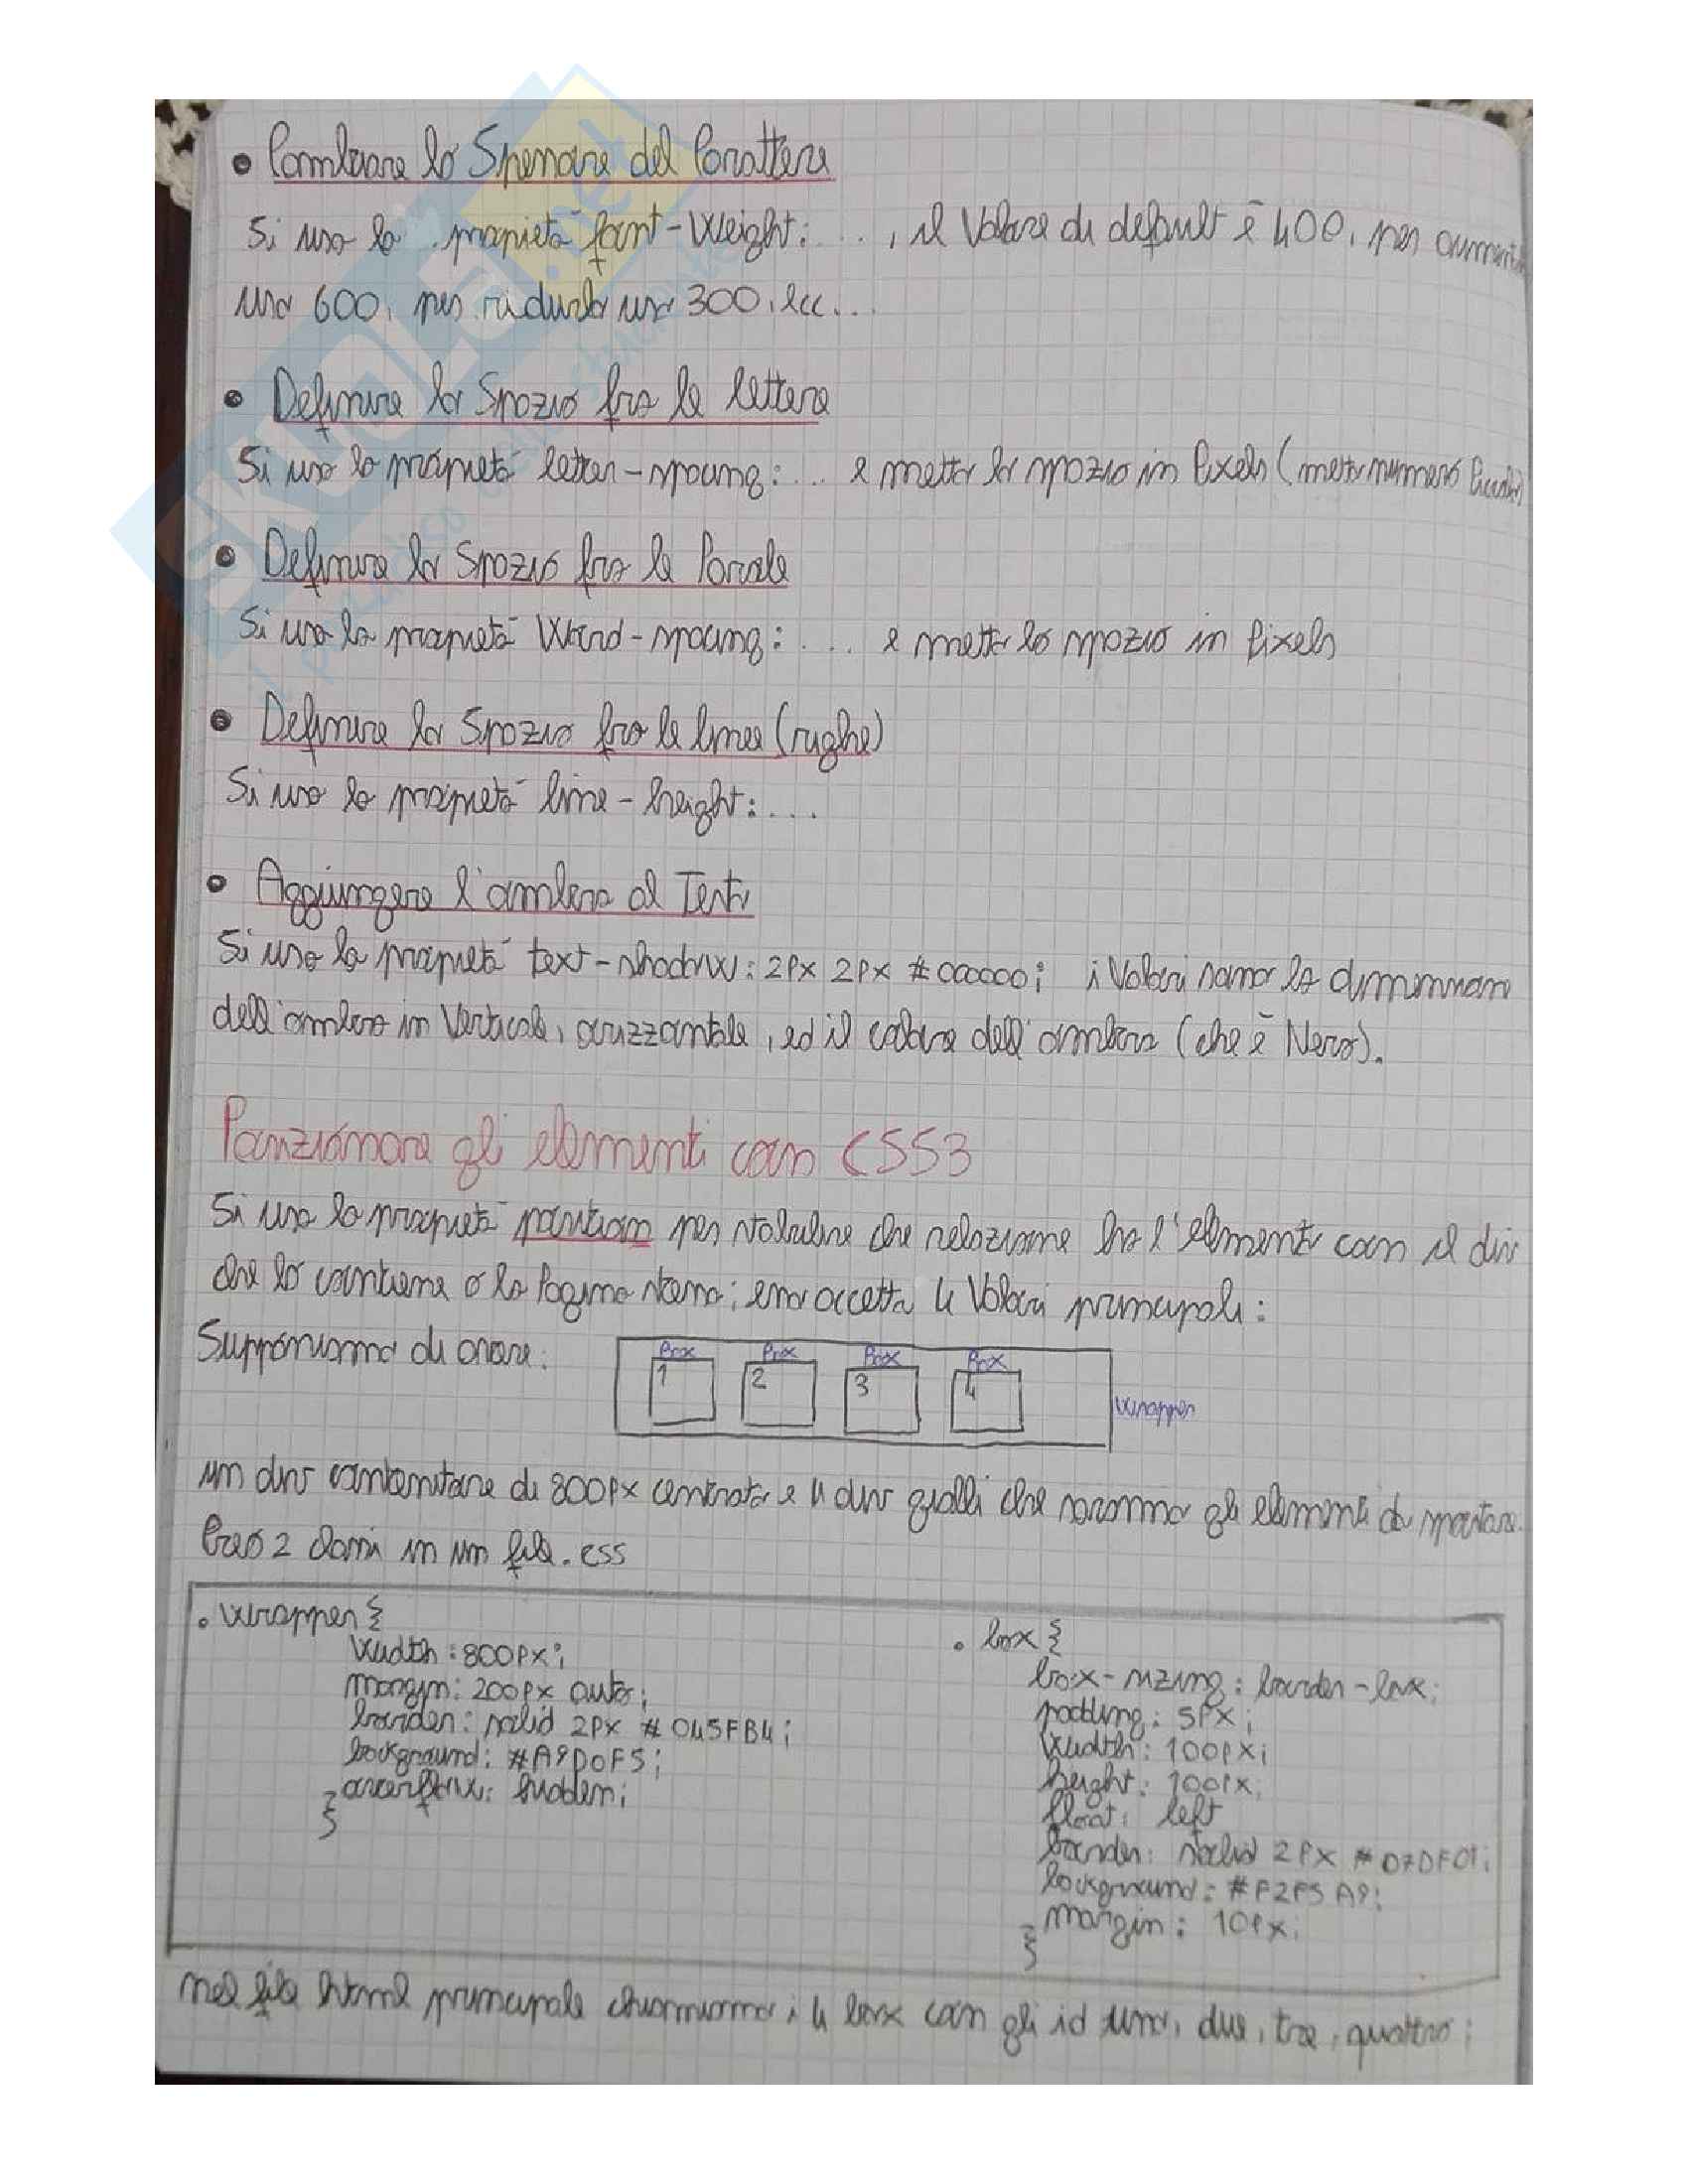 • Cambiare lo Spessore del Carattere
Si usa la proprietà font-Weight: ...., il Valore di default è 400, per aumentarlo
uso 600, per ridurlo uso 300, ecc...
• Definire lo Spazio fra le lettere
Si usa la proprietà letter-spacing: .... e metto lo spazio in Pixels (metto numero Piccolo)
• Definire lo Spazio fra le Parole
Si usa la proprietà Word-spacing: .... e metto lo spazio in Pixels
• Definire lo Spazio fra le linee (righe)
Si usa la proprietà line-height: ....
• Aggiungere l'ombra al Testo
Si usa la proprietà text-shadow: 2px 2px #000000; i Valori sono la dimensione
dell'ombra in Verticale, orizzontale, ed il colore dell'ombra (che è Nero).
Posizionare gli elementi con CSS3
Si usa la proprietà position per stabilire che relazione ha l'elemento con il div
che lo contiene o la Pagina stessa; essa accetta 4 Valori principali:
Supponiamo di creare:
Box Box Box Box
1 2 3 4
Wrapper
un div contenitore di 800px centrato e 4 div gialli che saranno gli elementi da spostare.
Creo 2 classi in un file .css
.wrapper{
Width: 800px;
margin: 200px auto;
border: solid 2px #045FB4;
background: #A9D0F5;
overflow: hidden;
}
.box{
box-sizing: border-box;
padding: 5px;
Width: 100px;
height: 100px;
float: left
border: solid 2px #D7DF01;
background: #F2F5A9;
margin: 10px;
}
nel file html principale chiamiamo i 4 box con gli id uno, due, tre, quattro;
SKUOLA.net